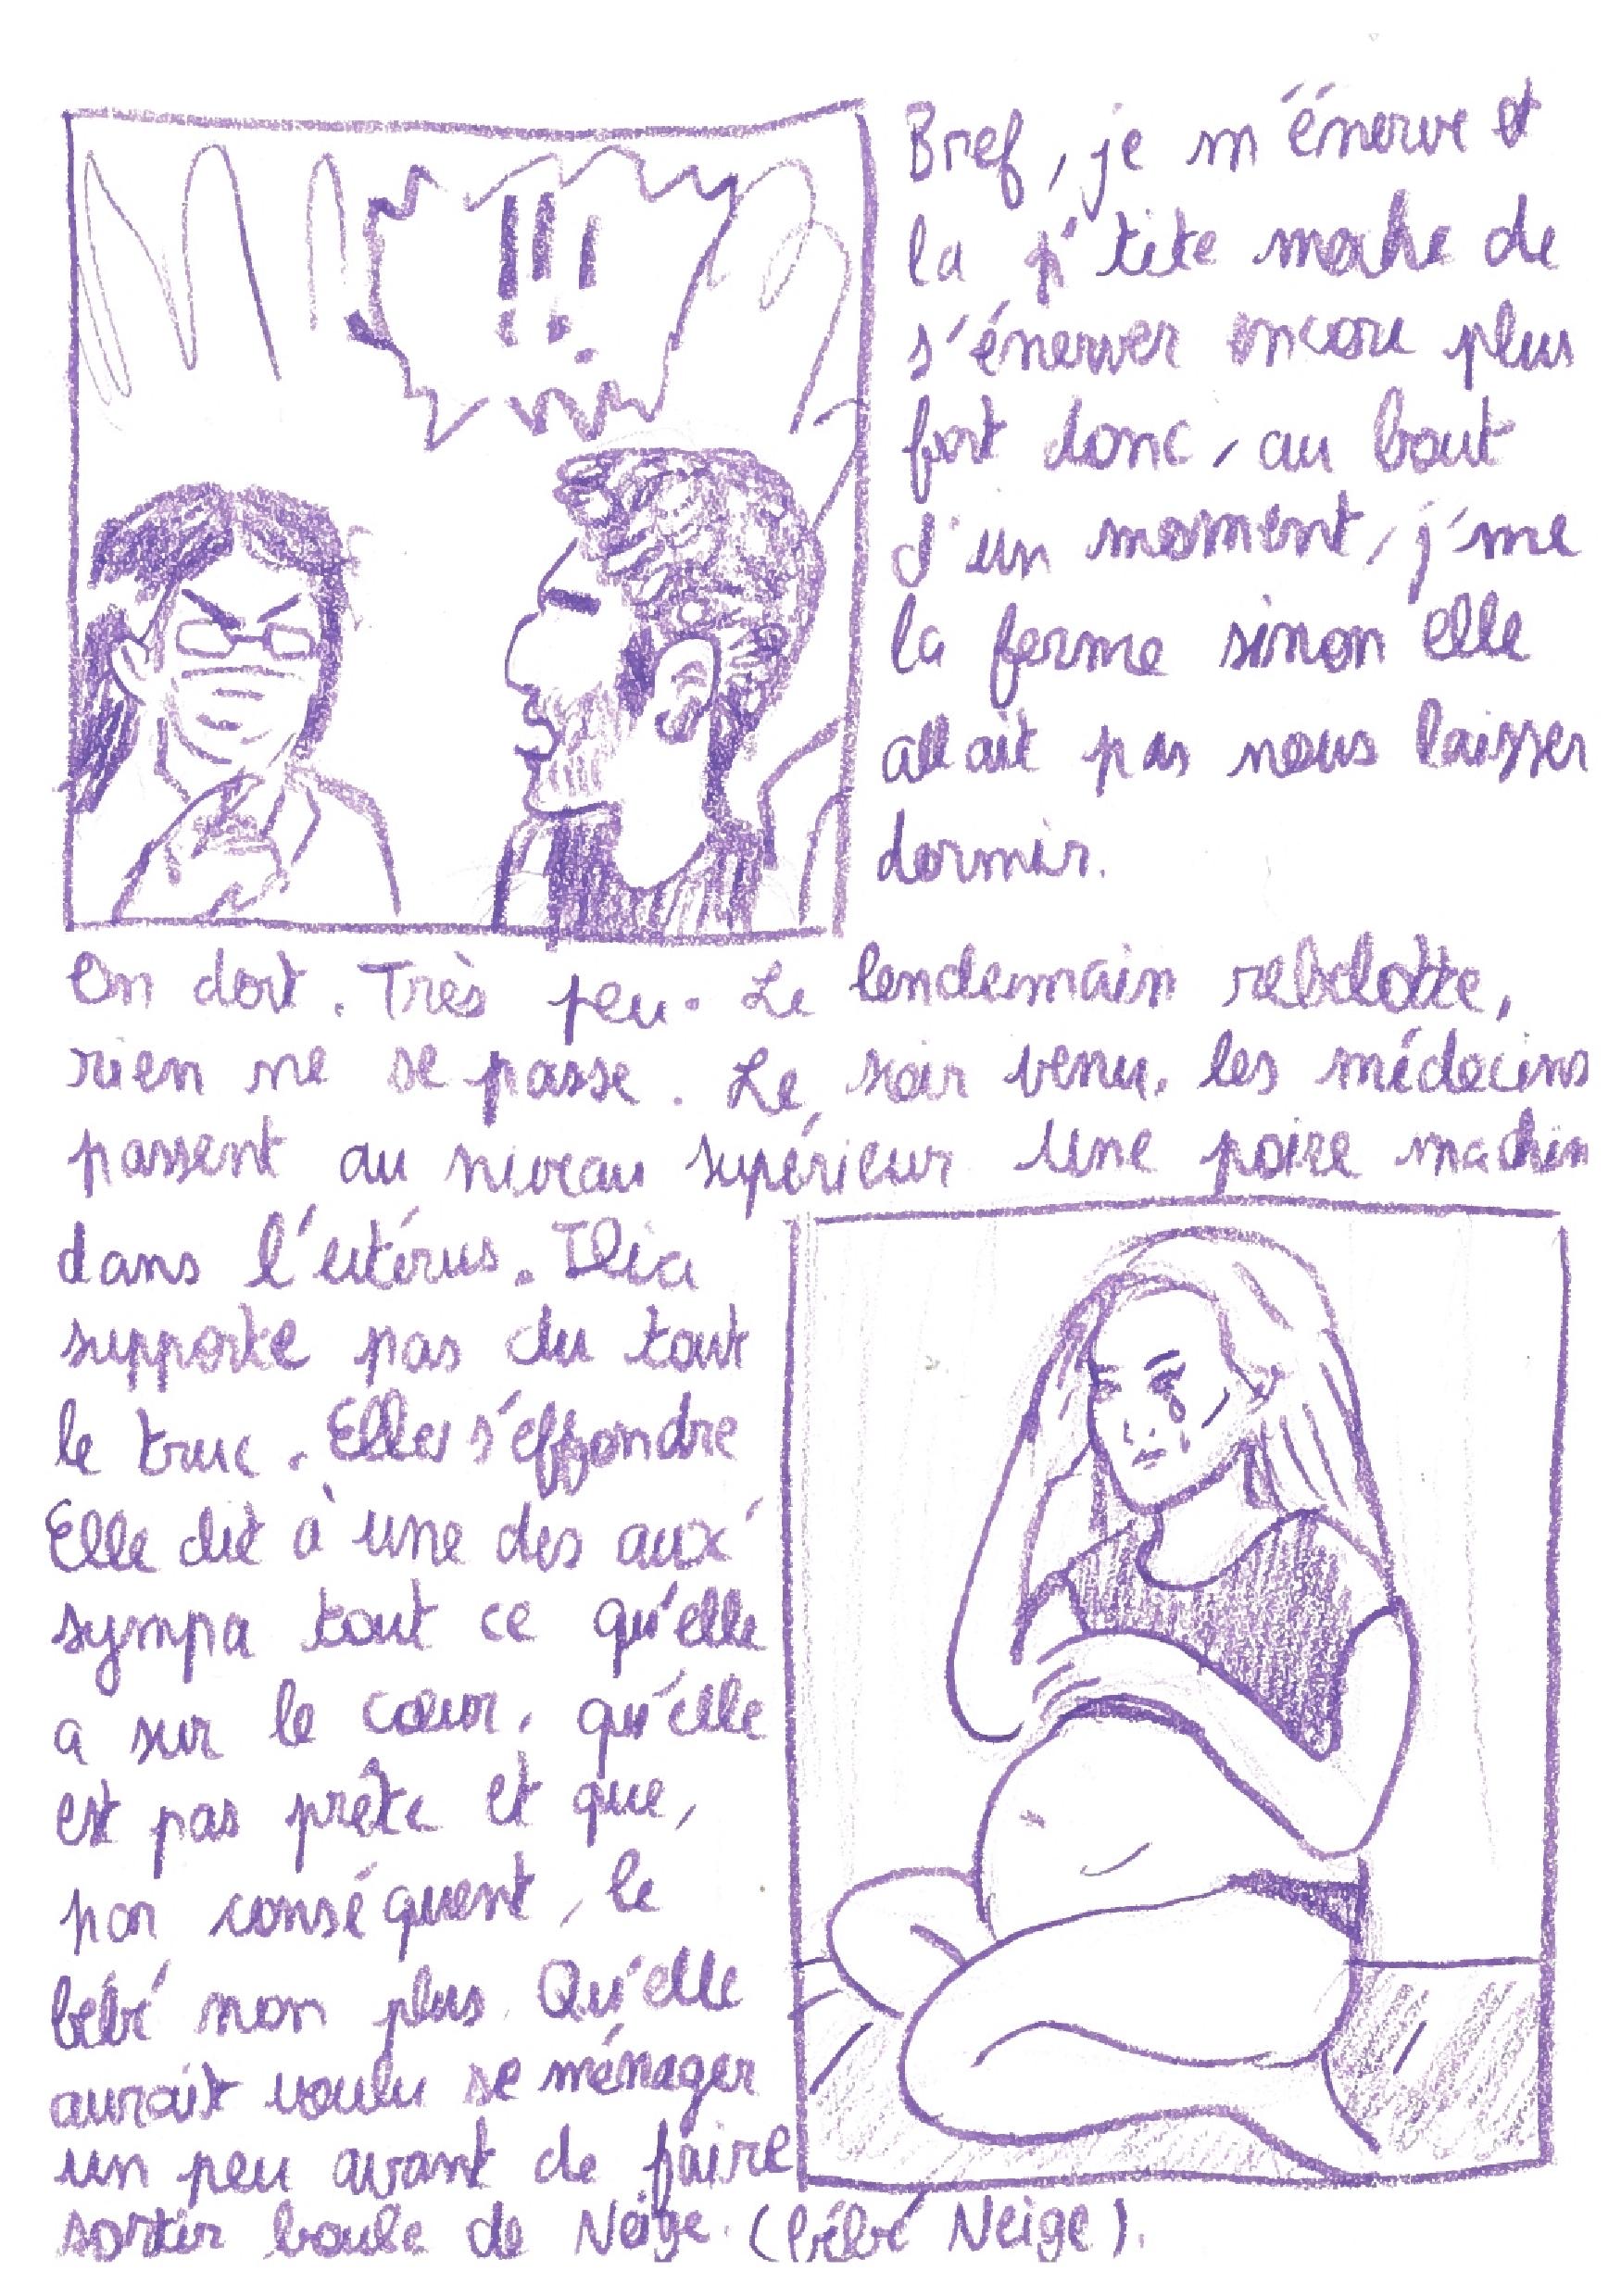 !!!
Bref, je m'énerve et
la p'tite moche de
s'énerver encore plus
fort donc, au bout
d'un moment, j'me
la ferme sinon elle
allait pas nous laisser
dormir.
On dort. Très peu. Le lendemain rebelotte,
rien ne se passe. Le soir venu, les médecins
passent au niveau supérieur une poire machin
dans l'utérus. Ilia
supporte pas du tout
le truc. Elle s'effondre
Elle dit à une des aux'
sympa tout ce qu'elle
a sur le cœur, qu'elle
est pas prête et que,
par conséquent, le
bébé non plus. Qu'elle
aurait voulu se ménager
un peu avant de faire
sortir boule de Neige. (bébé Neige).